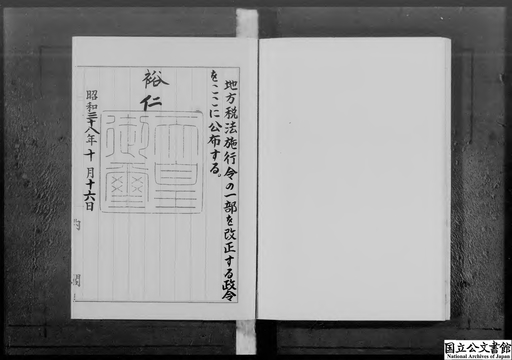 地方税法施行令の一部を改正する政令
をここに公布する。
裕仁
天皇
御璽
昭和三十八年十月十六日
内閣
国立公文書館
National Archives of Japan